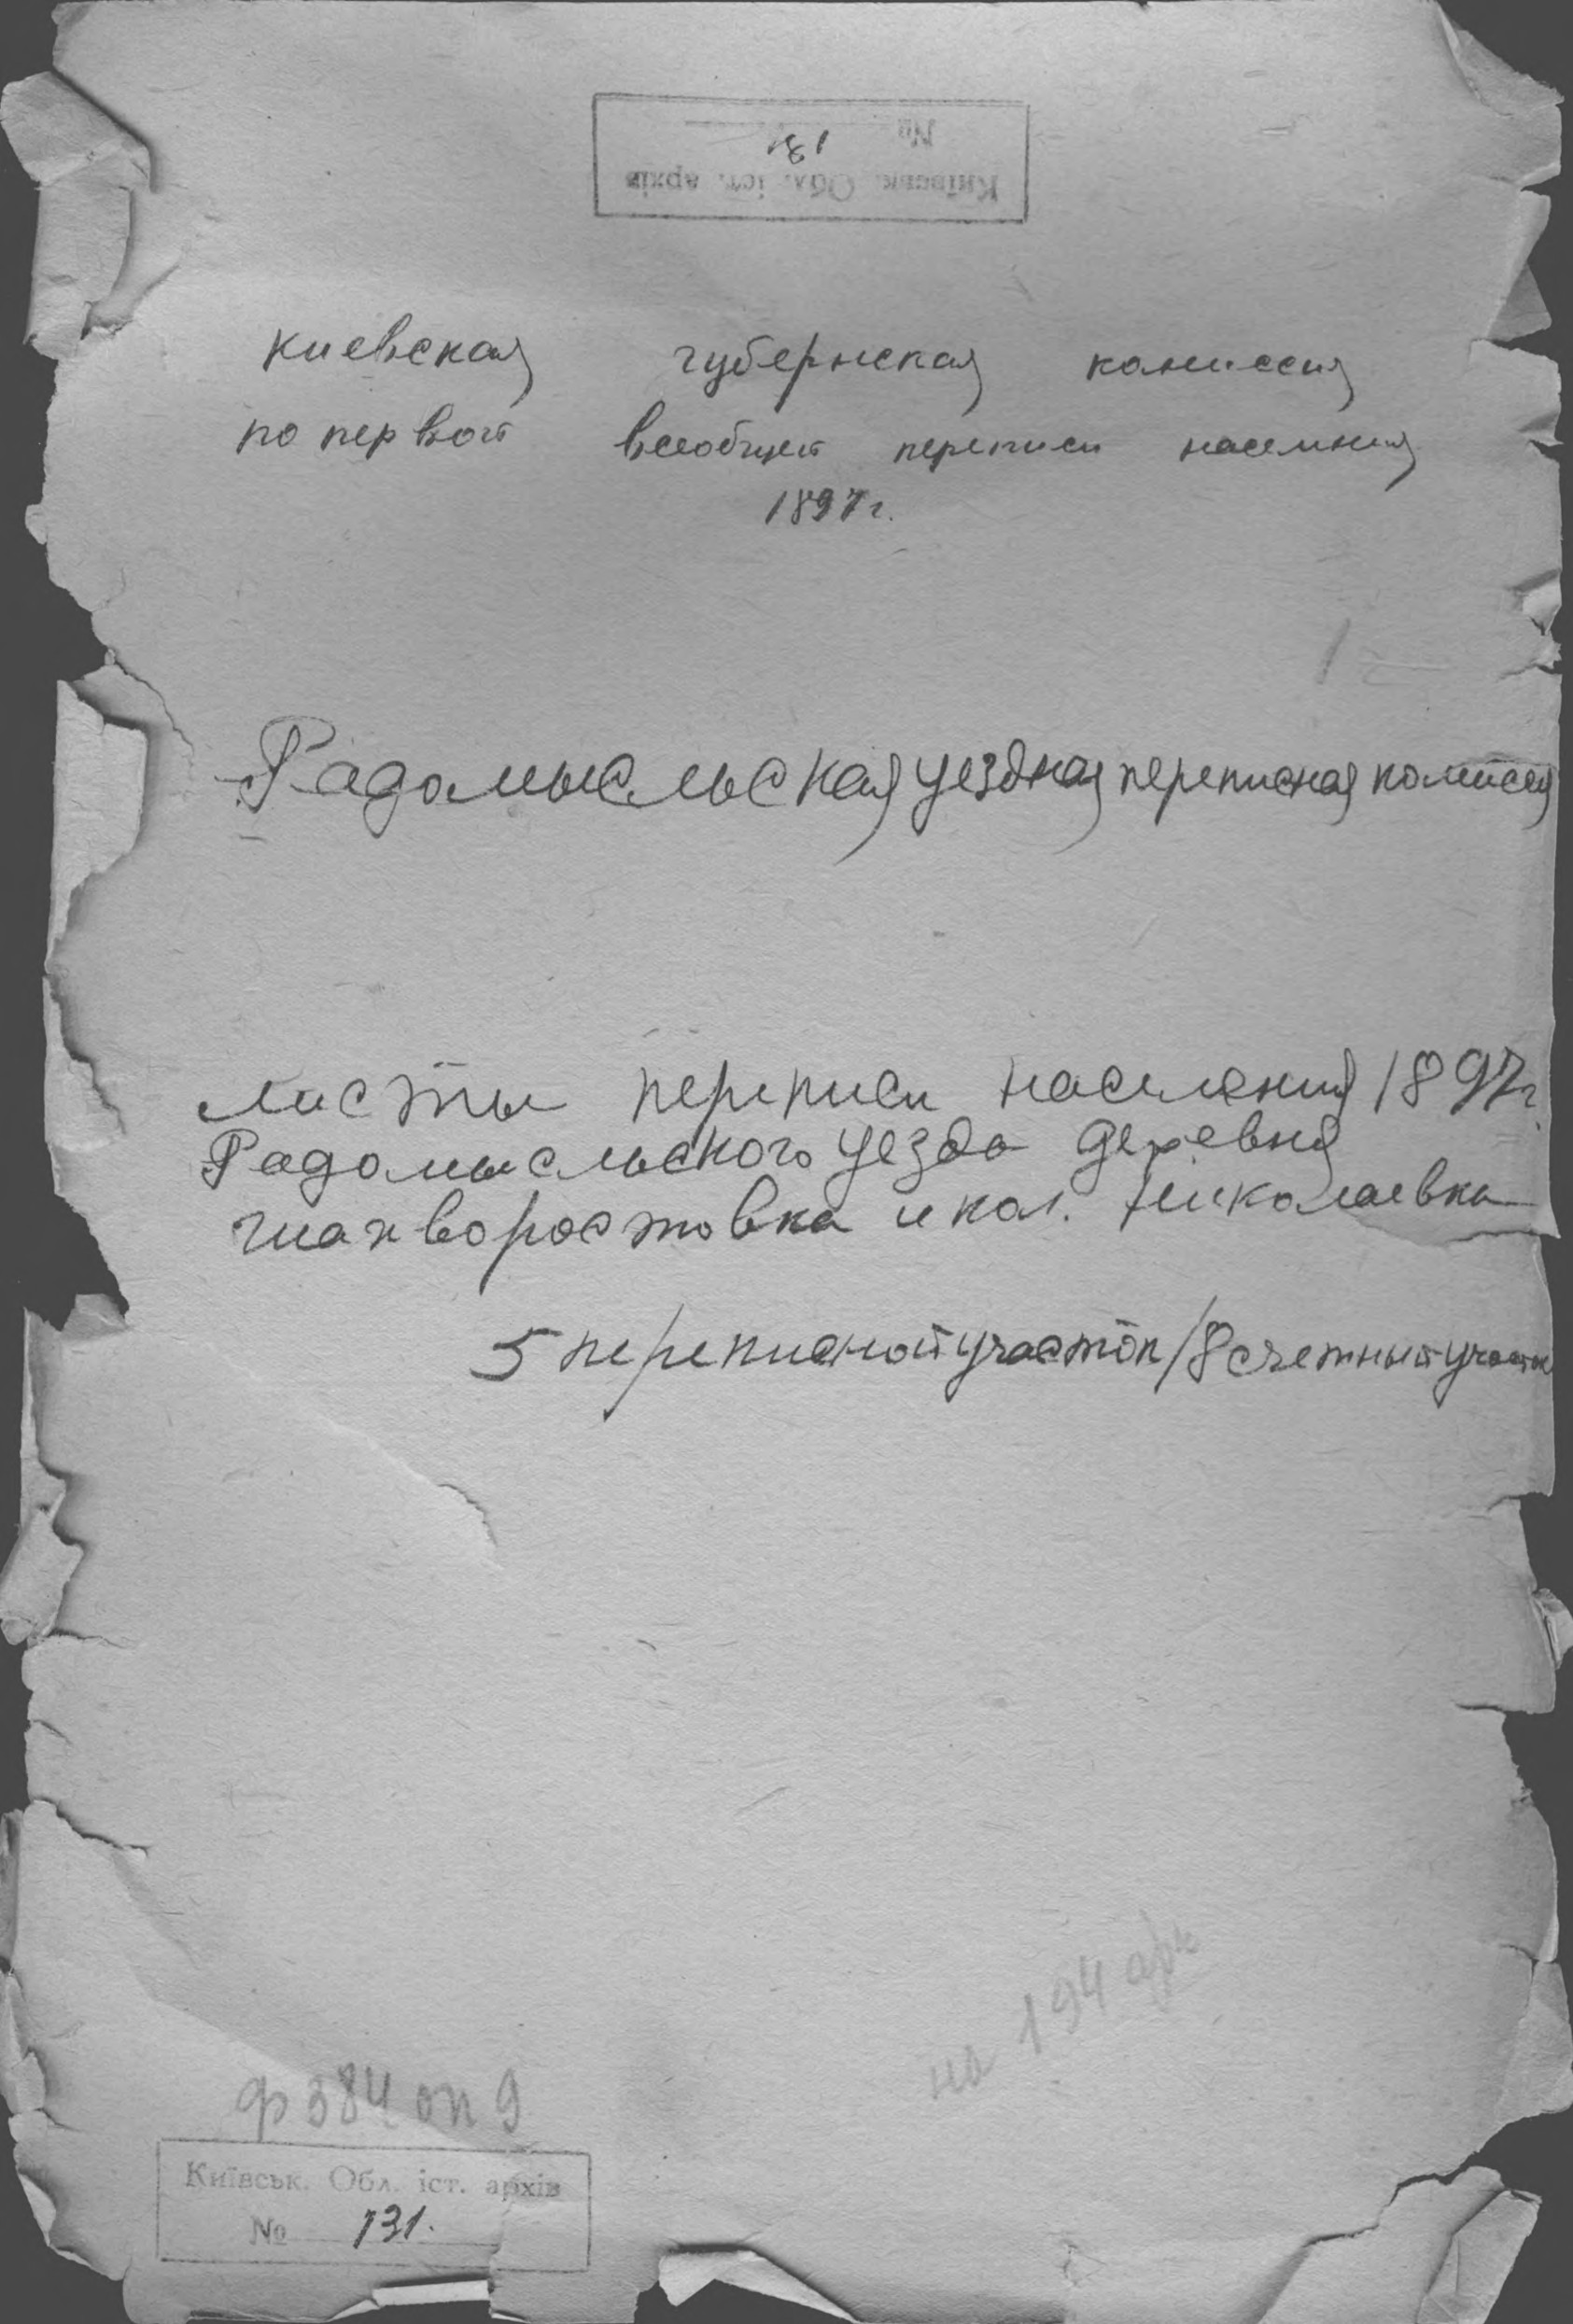 Київськ. Обл. іст. архів
№ 131
киевская губернская комиссия
по первой всеобщей переписи населения
1897 г.
Радомысльская уездная переписная комиссия
листы переписи населения 1897 г.
Радомысльского уезда деревня
и кол. Николаевка
5 переписной участок / 8 счетный участок
на 194 арк
ф 384 оп 9
Київськ. Обл. іст. архів
№ 131.